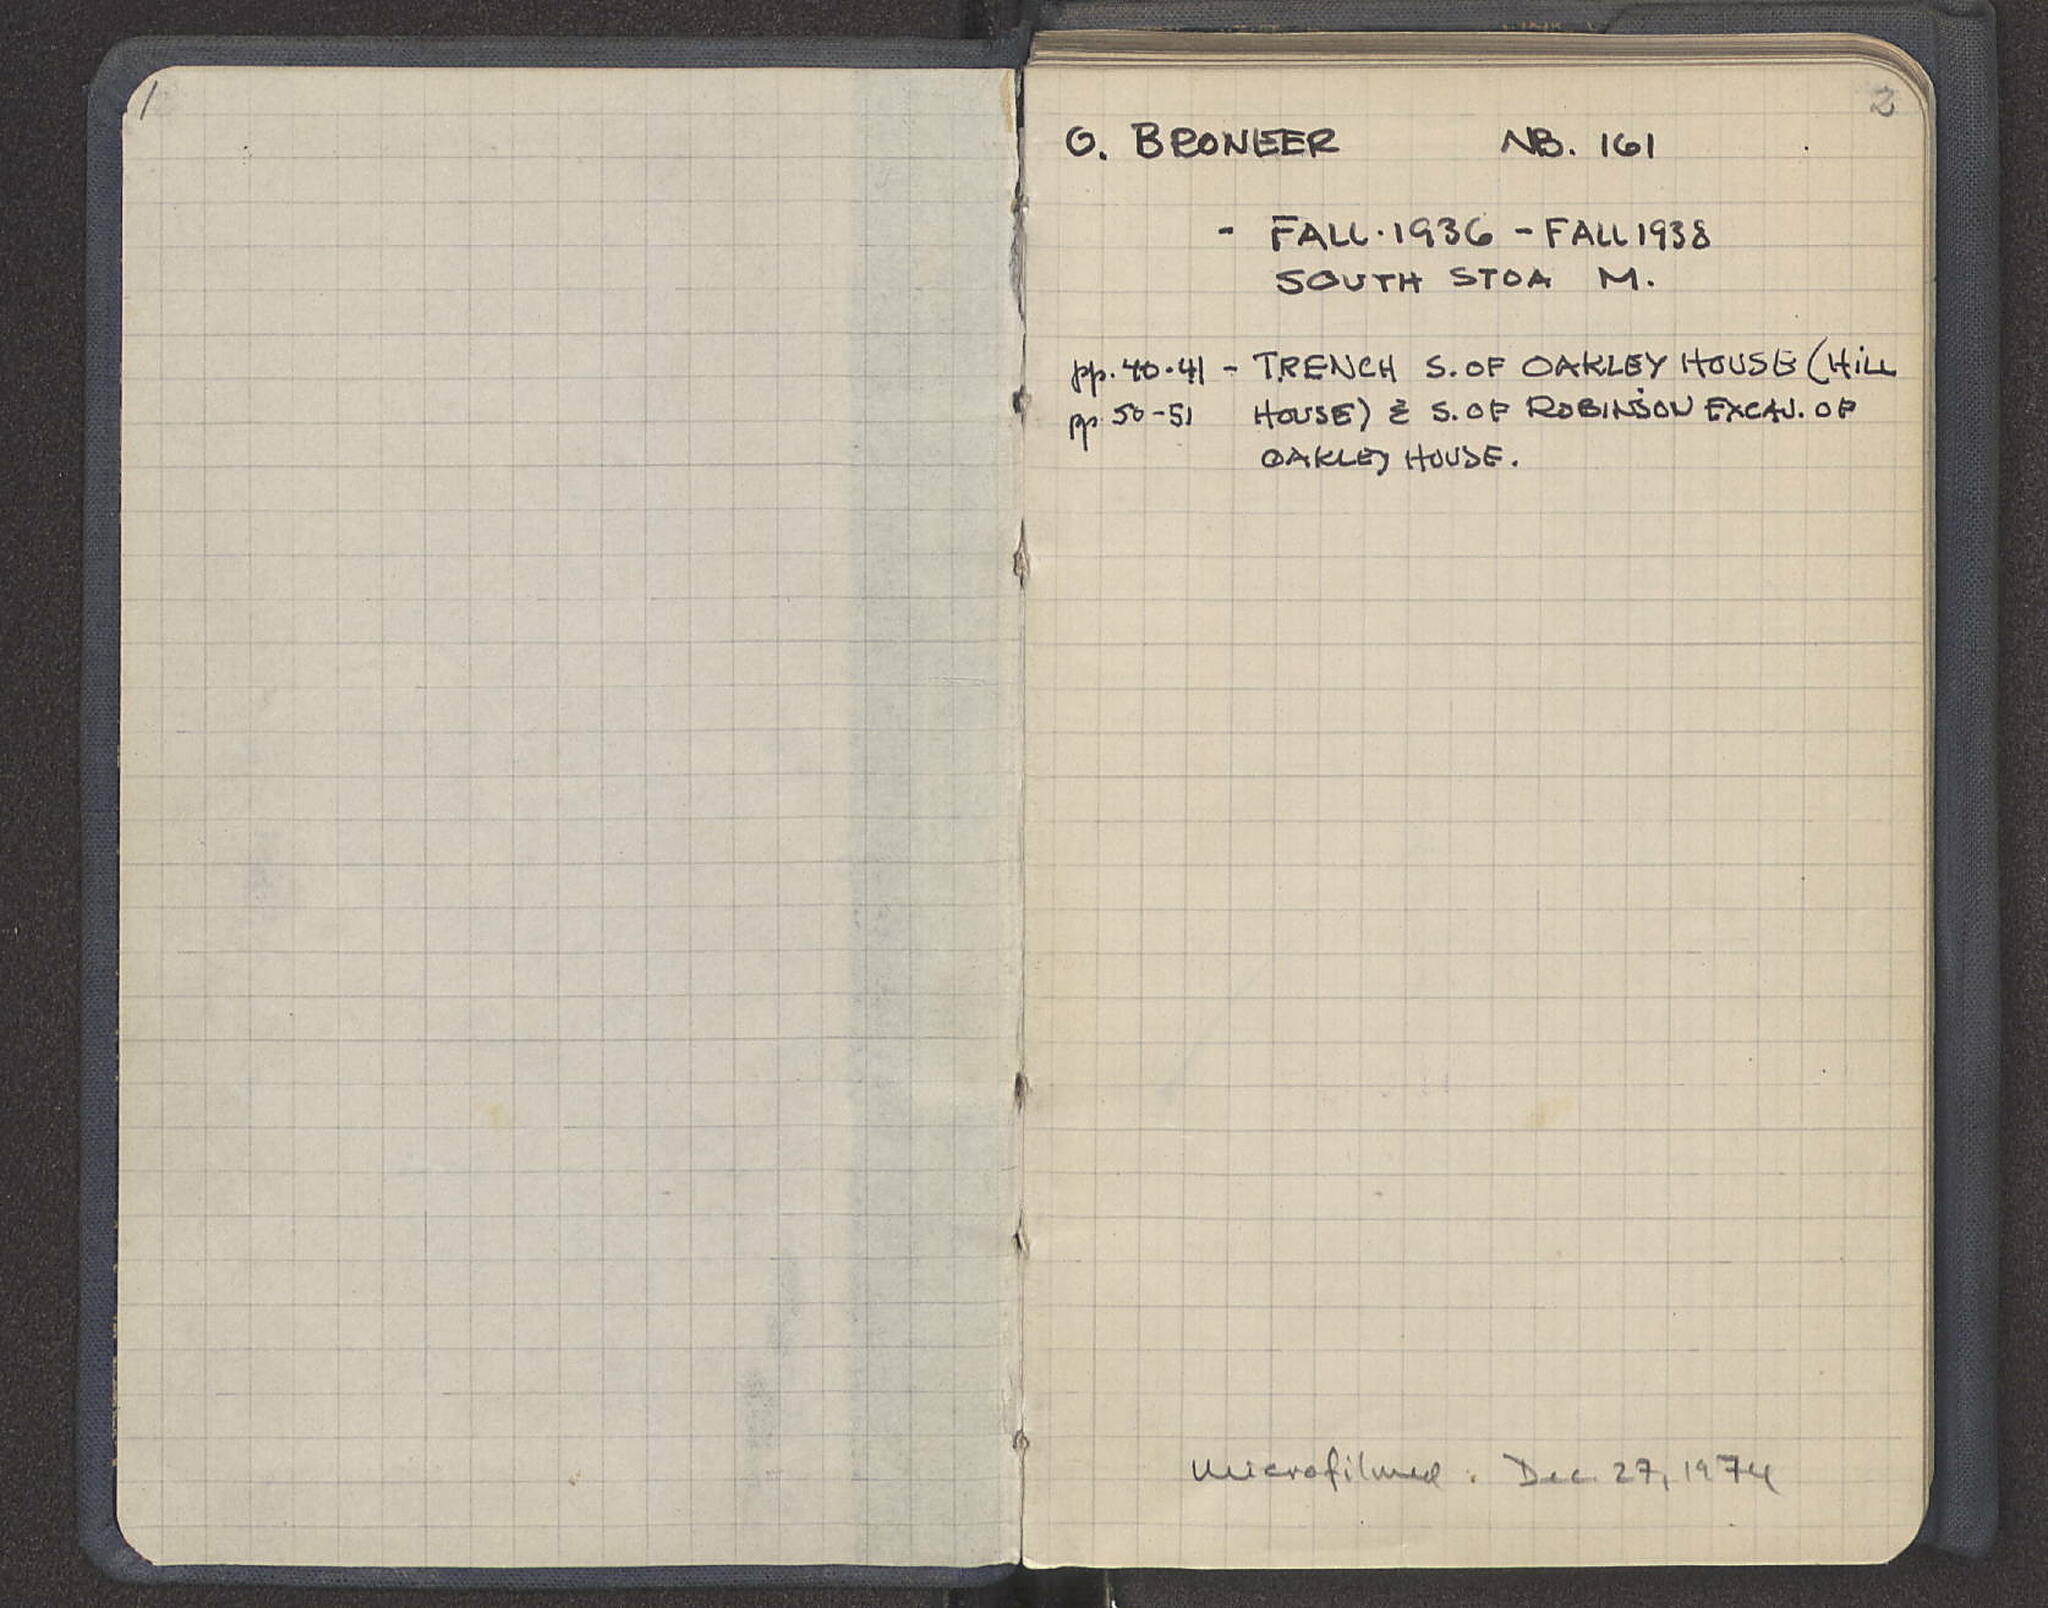 1
2
O. BRONEER NB. 161
- FALL. 1936 - FALL 1938
SOUTH STOA M.
pp. 40-41 - TRENCH S. OF OAKLEY HOUSE (HILL
pp. 50-51 HOUSE) & S. OF ROBINSON EXCAV. OF
OAKLEY HOUSE.
Microfilmed. Dec. 27, 1974